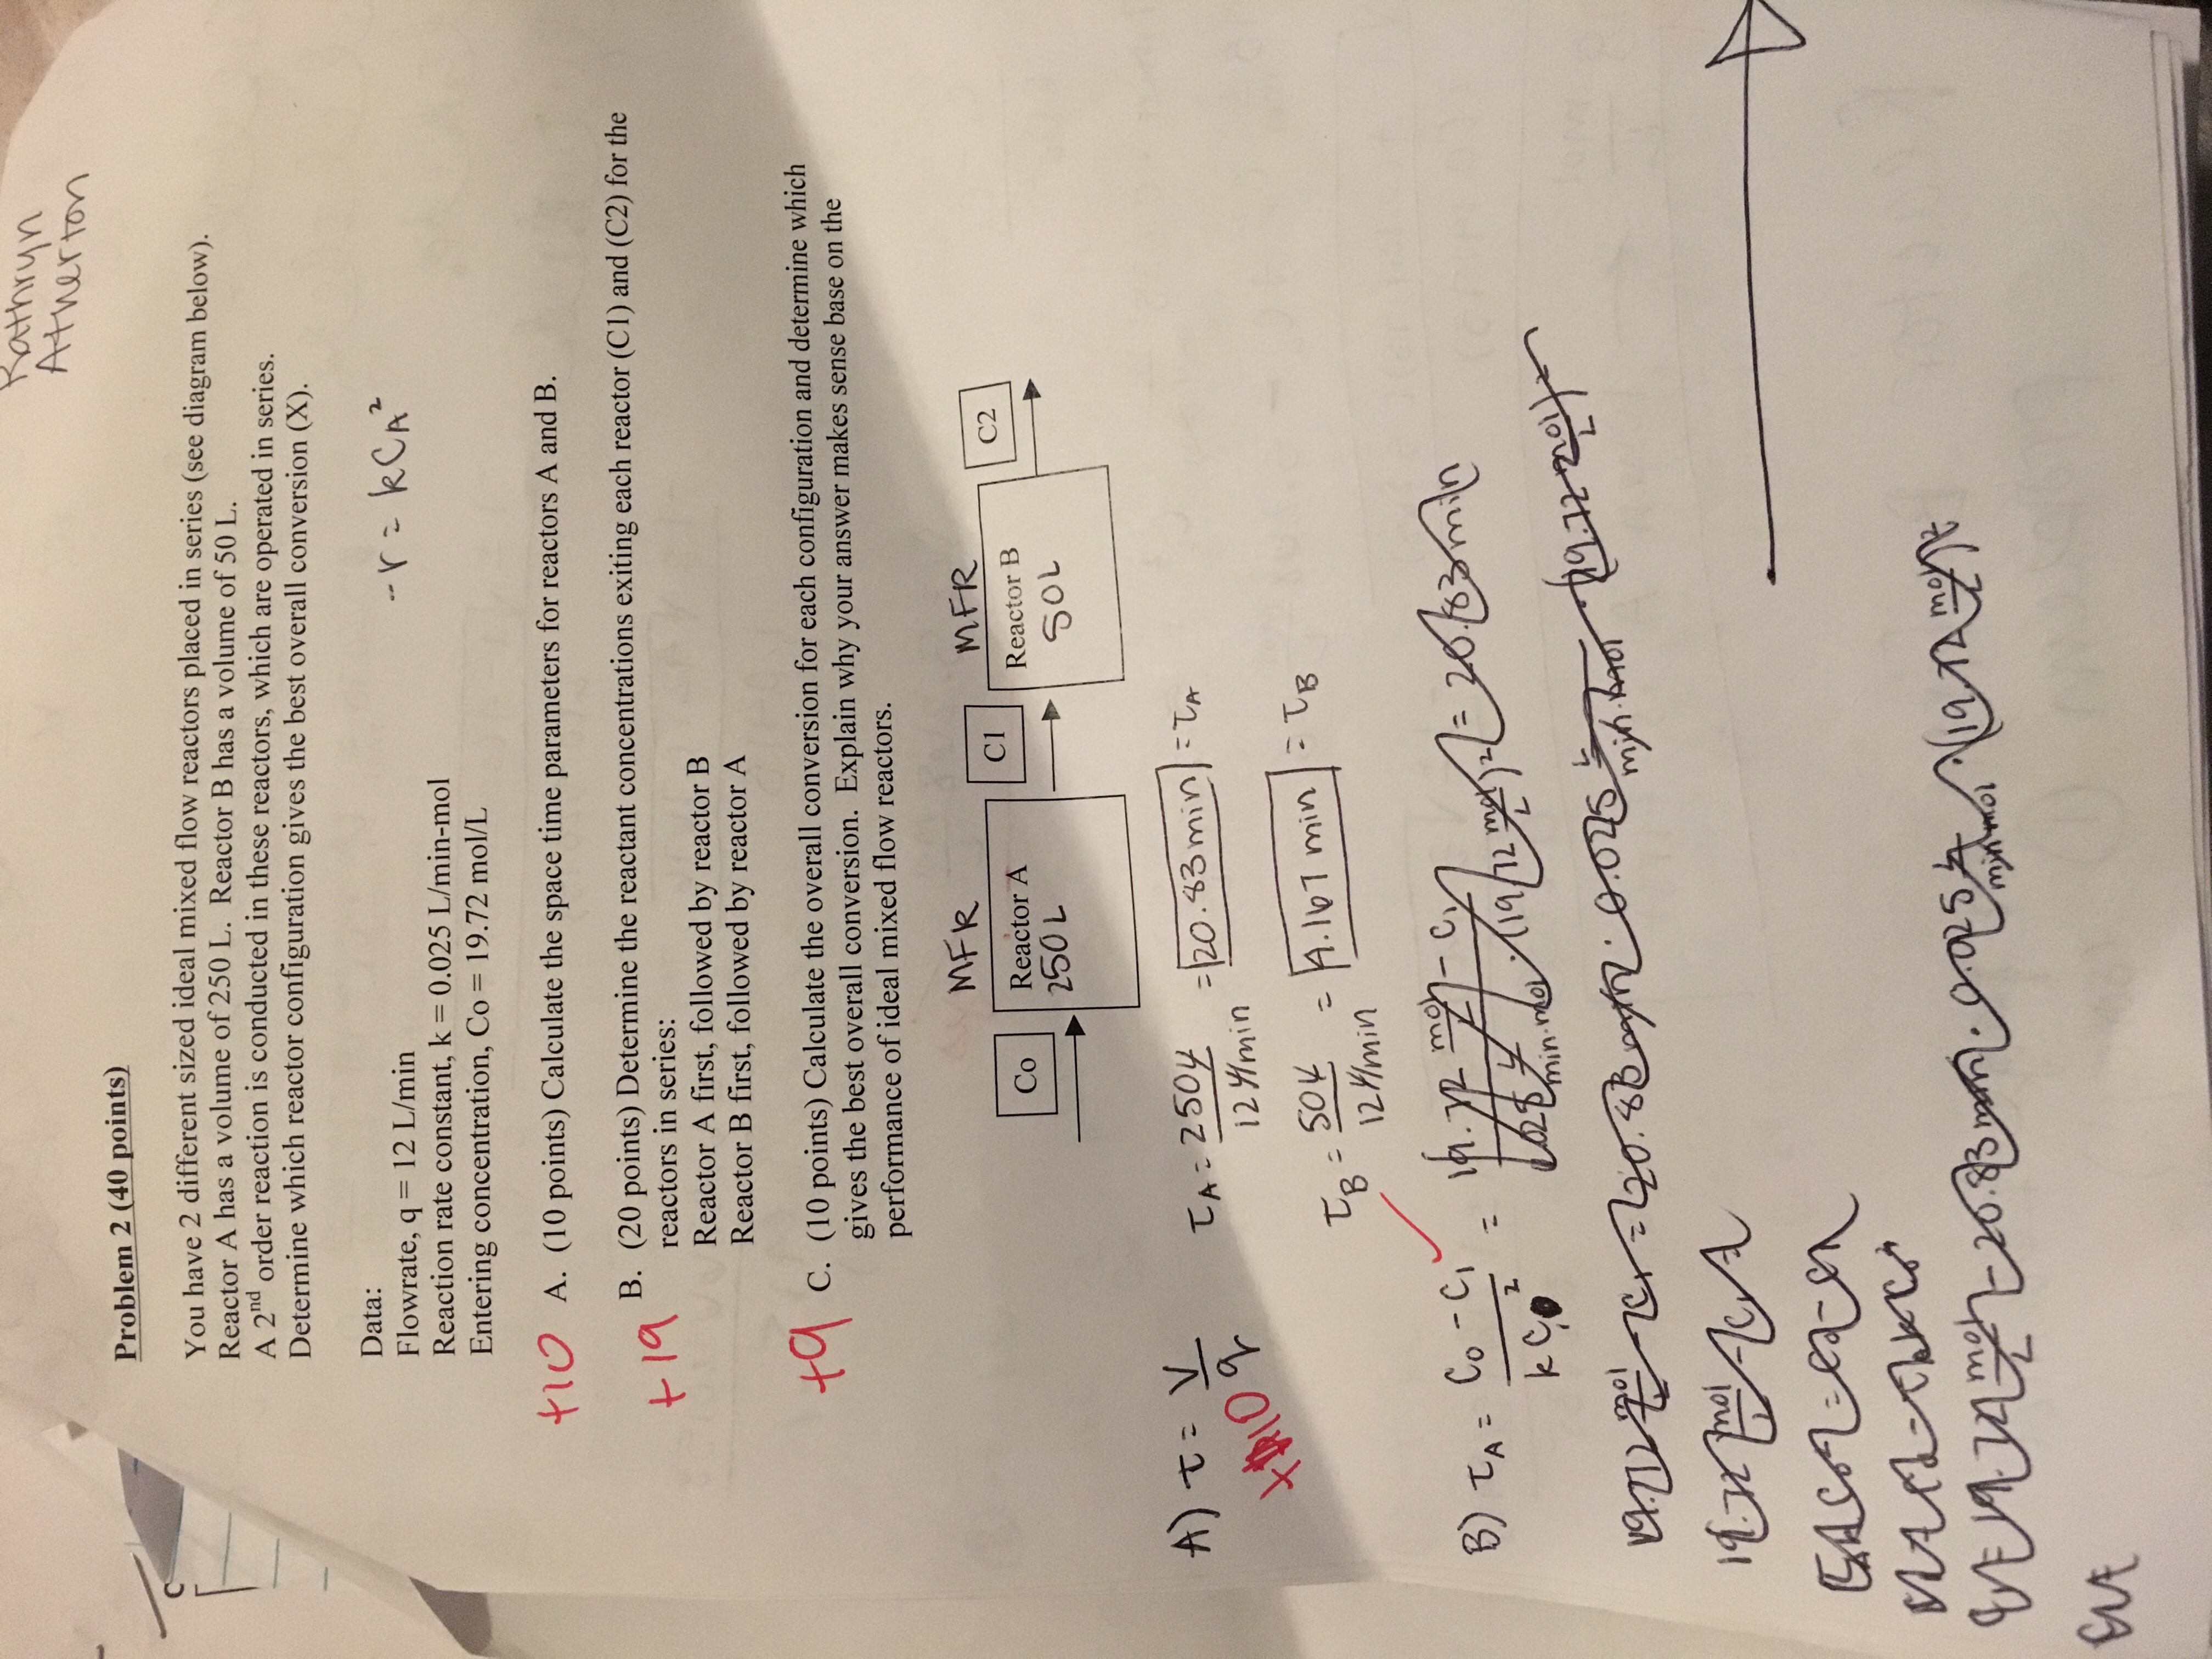 Kathryn
Atherton
Problem 2 (40 points)
You have 2 different sized ideal mixed flow reactors placed in series (see diagram below).
Reactor A has a volume of 250 L. Reactor B has a volume of 50 L.
A 2nd order reaction is conducted in these reactors, which are operated in series.
Determine which reactor configuration gives the best overall conversion (X).
Data:
Flowrate, q = 12 L/min
-r = kCA²
Reaction rate constant, k = 0.025 L/min-mol
Entering concentration, Co = 19.72 mol/L
+10 A. (10 points) Calculate the space time parameters for reactors A and B.
+19 B. (20 points) Determine the reactant concentrations exiting each reactor (C1) and (C2) for the
reactors in series:
Reactor A first, followed by reactor B
Reactor B first, followed by reactor A
+9 C. (10 points) Calculate the overall conversion for each configuration and determine which
gives the best overall conversion. Explain why your answer makes sense base on the
performance of ideal mixed flow reactors.
MFR MFR
Co Reactor A C1 Reactor B C2
250 L 50L
A) τ = V/q τA = 250L / 12 L/min = 20.83 min = τA
+10
τB = 50L / 12 L/min = 4.167 min = τB
B) τA = C0 - C1 / kC1² = 19.72 mol/L - C1 / .025 L/min·mol · (19.72 mol/L)² = 20.83 min
19.72 mol/L - C1 = 20.83 min · 0.025 L/min·mol · (19.72 mol/L)²
19.72 mol/L - C1 =
C1 = 19.72 mol/L - 20.83 min · 0.025 L/min·mol · (19.72 mol/L)²